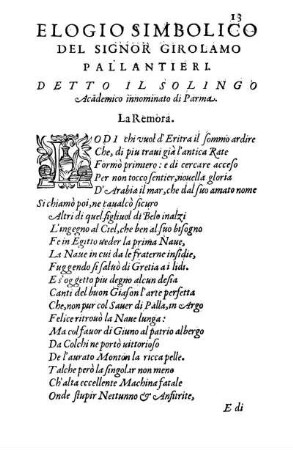 13
ELOGIO SIMBOLICO
DEL SIGNOR GIROLAMO
PALLANTIERI.
DETTO IL SOLINGO
Académico innominato di Parma.
La Remora.
ODI chi vuol d'Eritra il sommo ardire
Che, di piu travi già l'antica Rate
Formò primiero: e di cercare acceso
Per non tocco sentier, nouella gloria
D'Arabia il mar, che dal suo amato nome
Si chiamò poi, ne tauolcò sicuro
Altri di quel figliuol di Belo inalzi
L'ingegno al Ciel, che ben al suo bisogno
Fe in Egitto veder la prima Naue,
La Naue in cui da le fraterne insidie,
Fuggendo si saluò di Gretia a i lidi.
E s'oggetto piu degno alcun desia
Canti del buon Giason l'arte perfetta
Che, non pur col Sauer di Palla, in Argo
Felice ritrouò la Naue lunga:
Ma col fauor di Giuno al patrio albergo
Da Colchi ne portò vittorioso
De l'aurato Monton la ricca pelle.
Talche però la singolar non meno
Ch'alta eccellente Machina fatale
Onde stupir Nettunno & Anfitrite,
E di